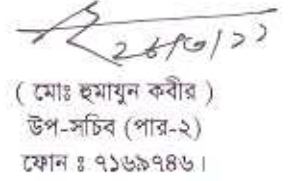 ২৮/৩/১১
( মোঃ হুমাযুন কবীর )
উপ-সচিব (পার-২)
ফোন ঃ ৭১৬৯৭৪৬।